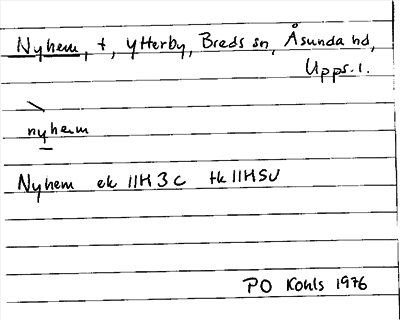 Nyhem, t, Ytterby, Breds sn, Åsunda hd,
Upps. l.
nyhem
Nyhem ek 11H3c tk 11HSV
PO Kohls 1976